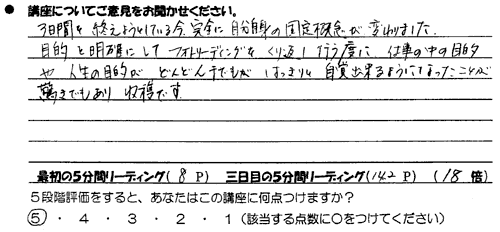 ● 講座についてご意見をお聞かせください。
3日間を終えようとしている今、完全に自分自身の固定概念が変わりました。
目的を明確にしてフォトリーディングをくり返し行う度に、仕事の中の目的
や人生の目的がどんどん手でもがはっきりと自覚出来るようになったことが
驚きでもあり収穫です。
最初の5分間リーディング( 8 P) 三日目の5分間リーディング(142 P) (18 倍)
5段階評価をすると、あなたはこの講座に何点つけますか?
⑤ ・ 4 ・ 3 ・ 2 ・ 1 (該当する点数に○をつけてください)